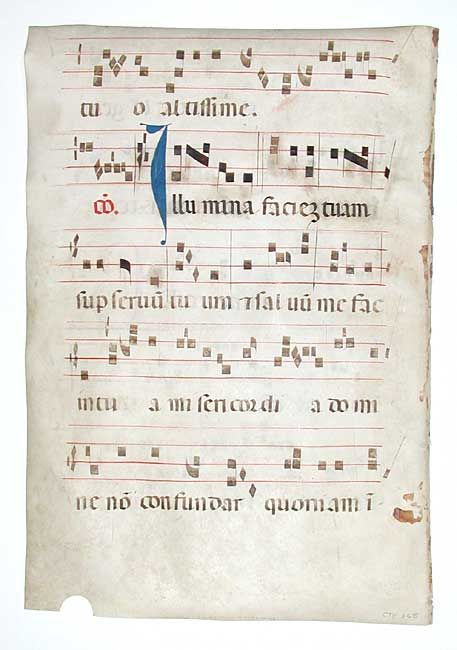 tu o altissime.
cō. Illumina faciez tuam
sup servū tu um ⁊ sal uū me fac
in tu a mi seri cor di a do mi
ne nō con fundar quoniam ī-